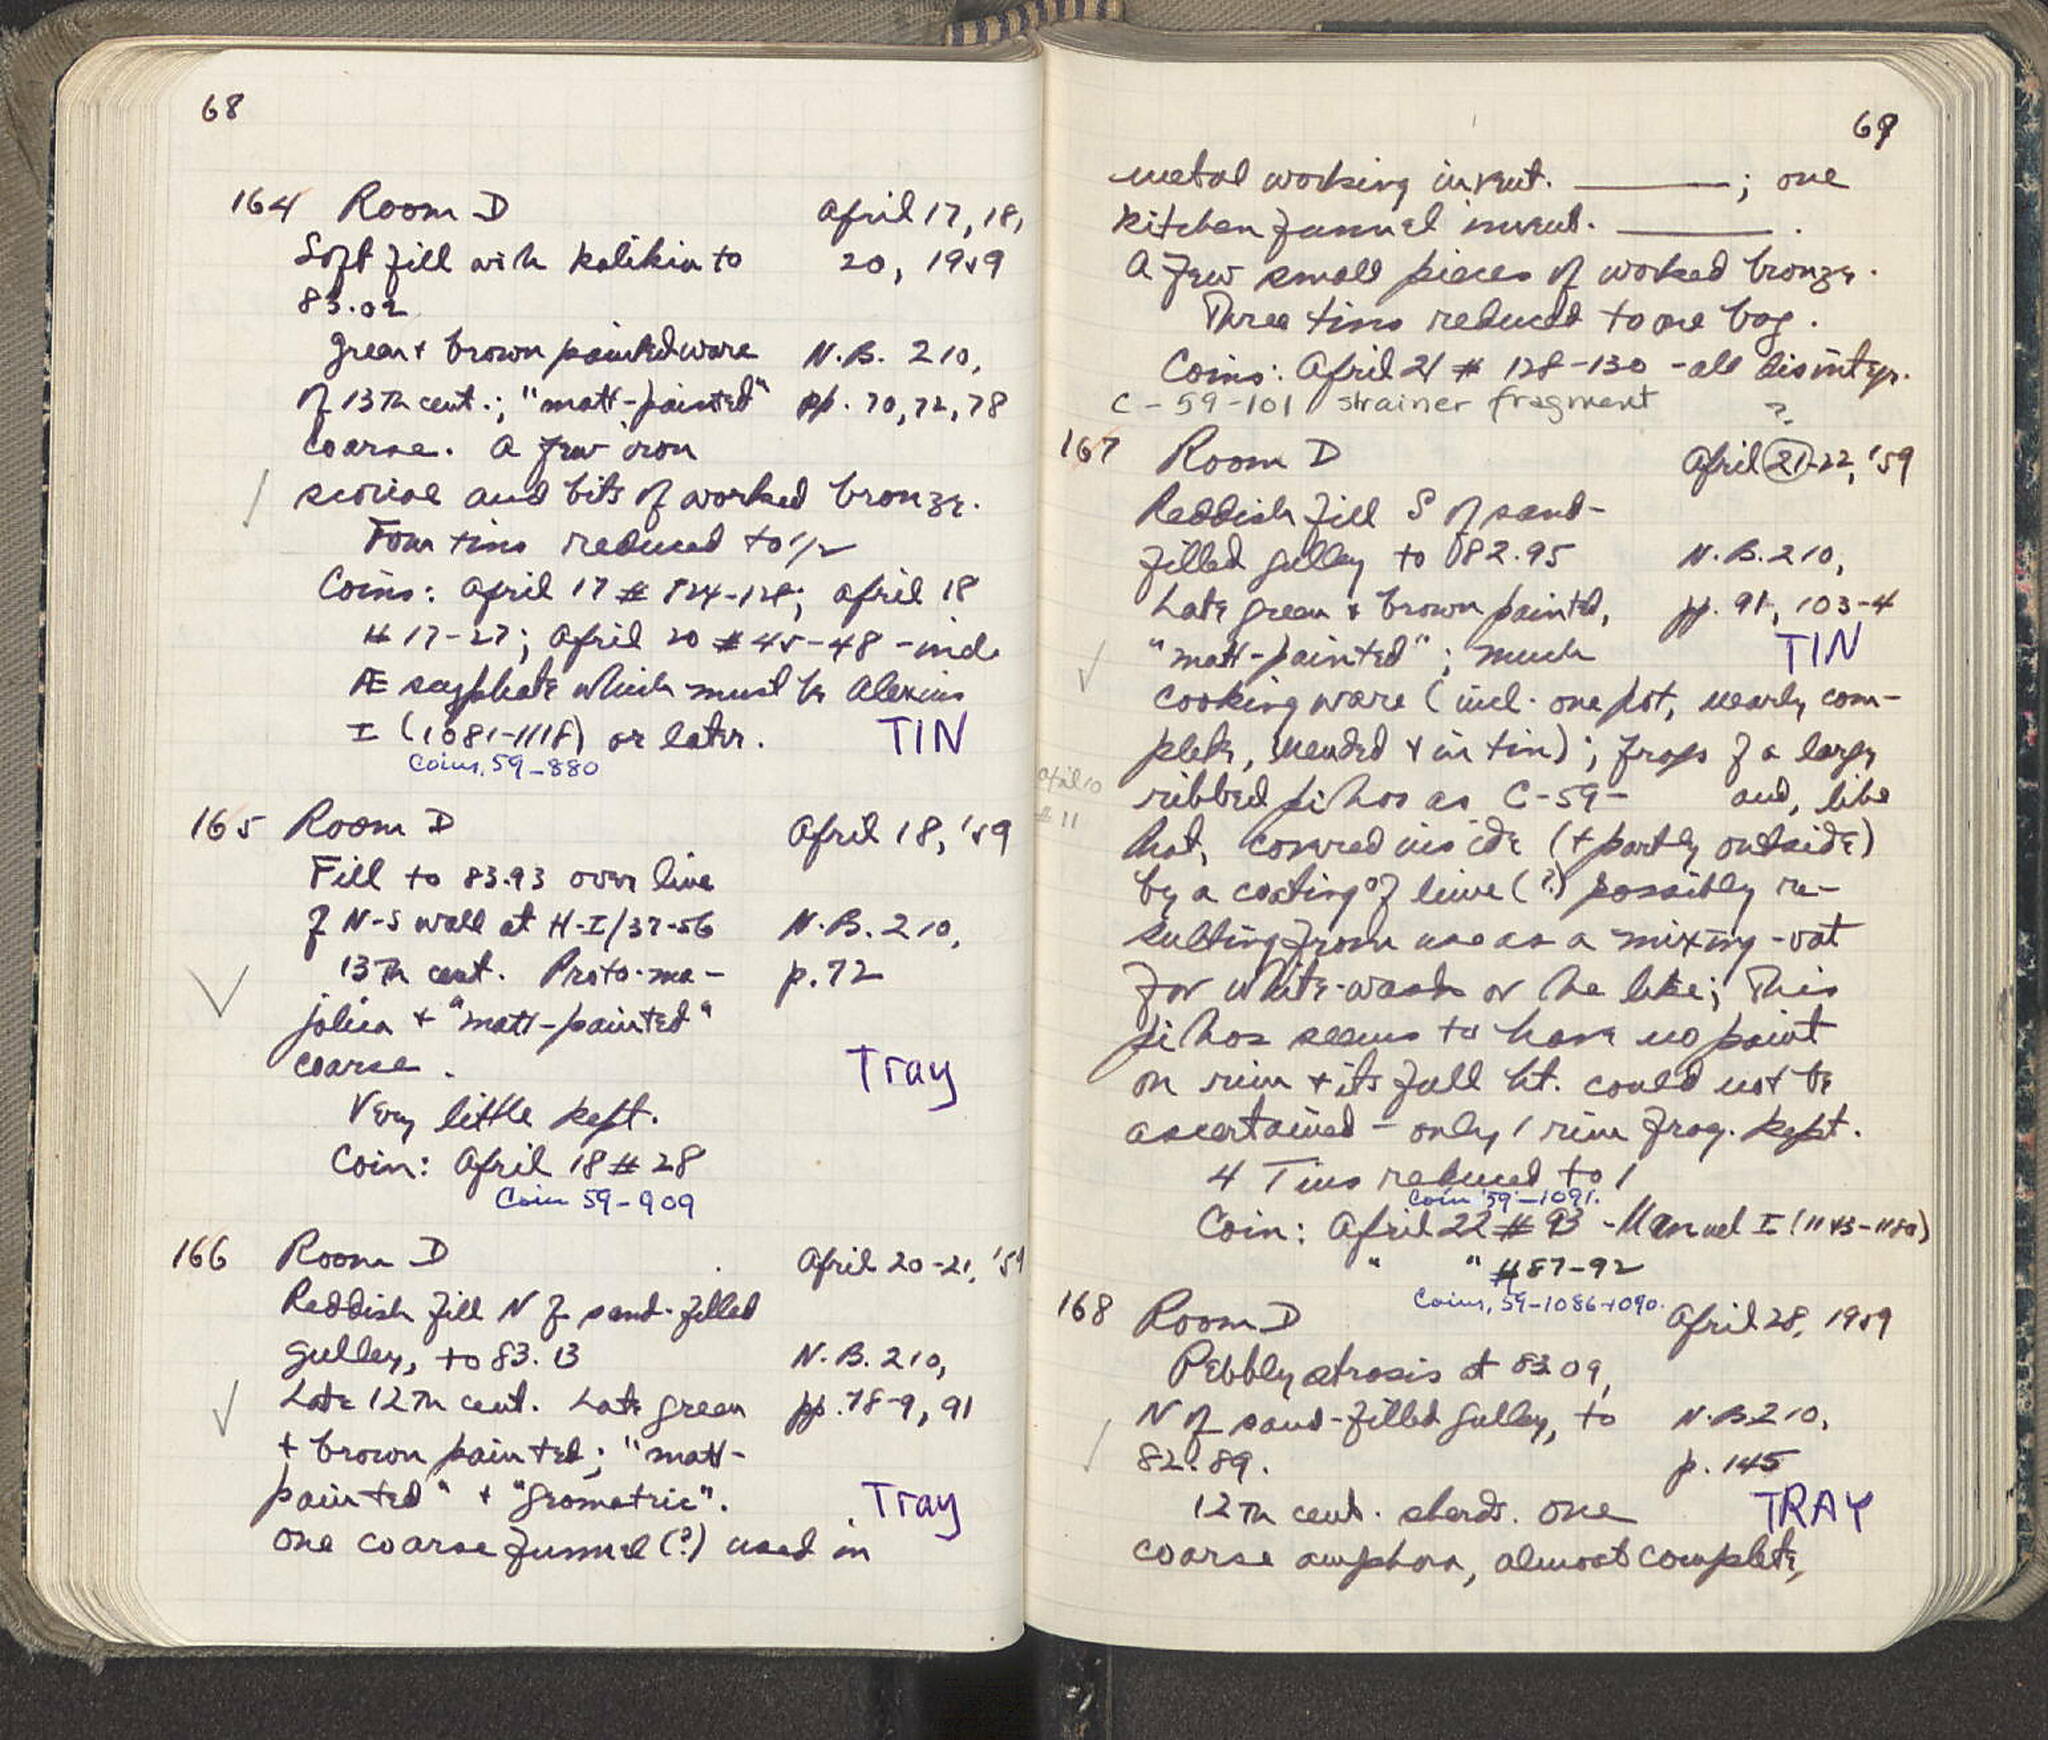 68
164 Room D April 17, 18,
Soft fill with kalikia to 20, 1959
83.02
green + brown painted ware N.B. 210,
of 13th cent.; "matt-painted" pp. 70, 72, 78
coarse. A few iron
scoriae and bits of worked bronze.
Four tins reduced to 1/2
Coins: April 17 # 124-128; April 18
# 17-27; April 20 # 45-48 - incl.
Æ scyphate which must be Alexius
I (1081-1118) or later. TIN
Coins, 59-880
165 Room D April 18, '59
Fill to 83.93 over line
of N-S wall at H-I/37-56 N.B. 210,
13th cent. Proto-ma- p. 72
jolica + "matt-painted"
coarse. Tray
Very little kept.
Coin: April 18 # 28
Coin 59-909
166 Room D April 20-21, '59
Reddish fill N of sand-filled
gulley, to 83.13 N.B. 210,
Late 12th cent. Late green pp. 78-9, 91
+ brown painted; "matt-
painted" + "geometric". Tray
One coarse funnel (?) used in
69
metal working invent. ______; one
kitchen funnel invent. ______.
A few small pieces of worked bronze.
Three tins reduced to one bag.
Coins: April 21 # 128-130 - all disintegr.
C-59-101 strainer fragment ?
167 Room D April 21-22, '59
Reddish fill S of sand-
filled gulley to 82.95 N.B. 210,
Late green + brown painted, pp. 91, 103-4
"matt-painted"; much TIN
cooking ware (incl. one pot, nearly com-
plete, mended + in tin); frags of a large
April 10
ribbed pithos as C-59- and, like
# 11
that, covered inside (+ partly outside)
by a coating of lime (?) possibly re-
sulting from use as a mixing-vat
for white-wash or the like; This
pithos seems to have no paint
on rim + its full ht. could not be
ascertained - only 1 rim frag. kept.
4 Tins reduced to 1
Coin '59-1091.
Coin: April 22 # 93 - Manuel I (1143-1180)
" " # 87-92
Coins, 59-1086-1090.
168 Room D April 28, 1959
Pebbly strosis at 83.09,
N of sand-filled gulley, to N.B. 210,
82.89. p. 145
12th cent. sherds. One TRAY
coarse amphora, almost complete,